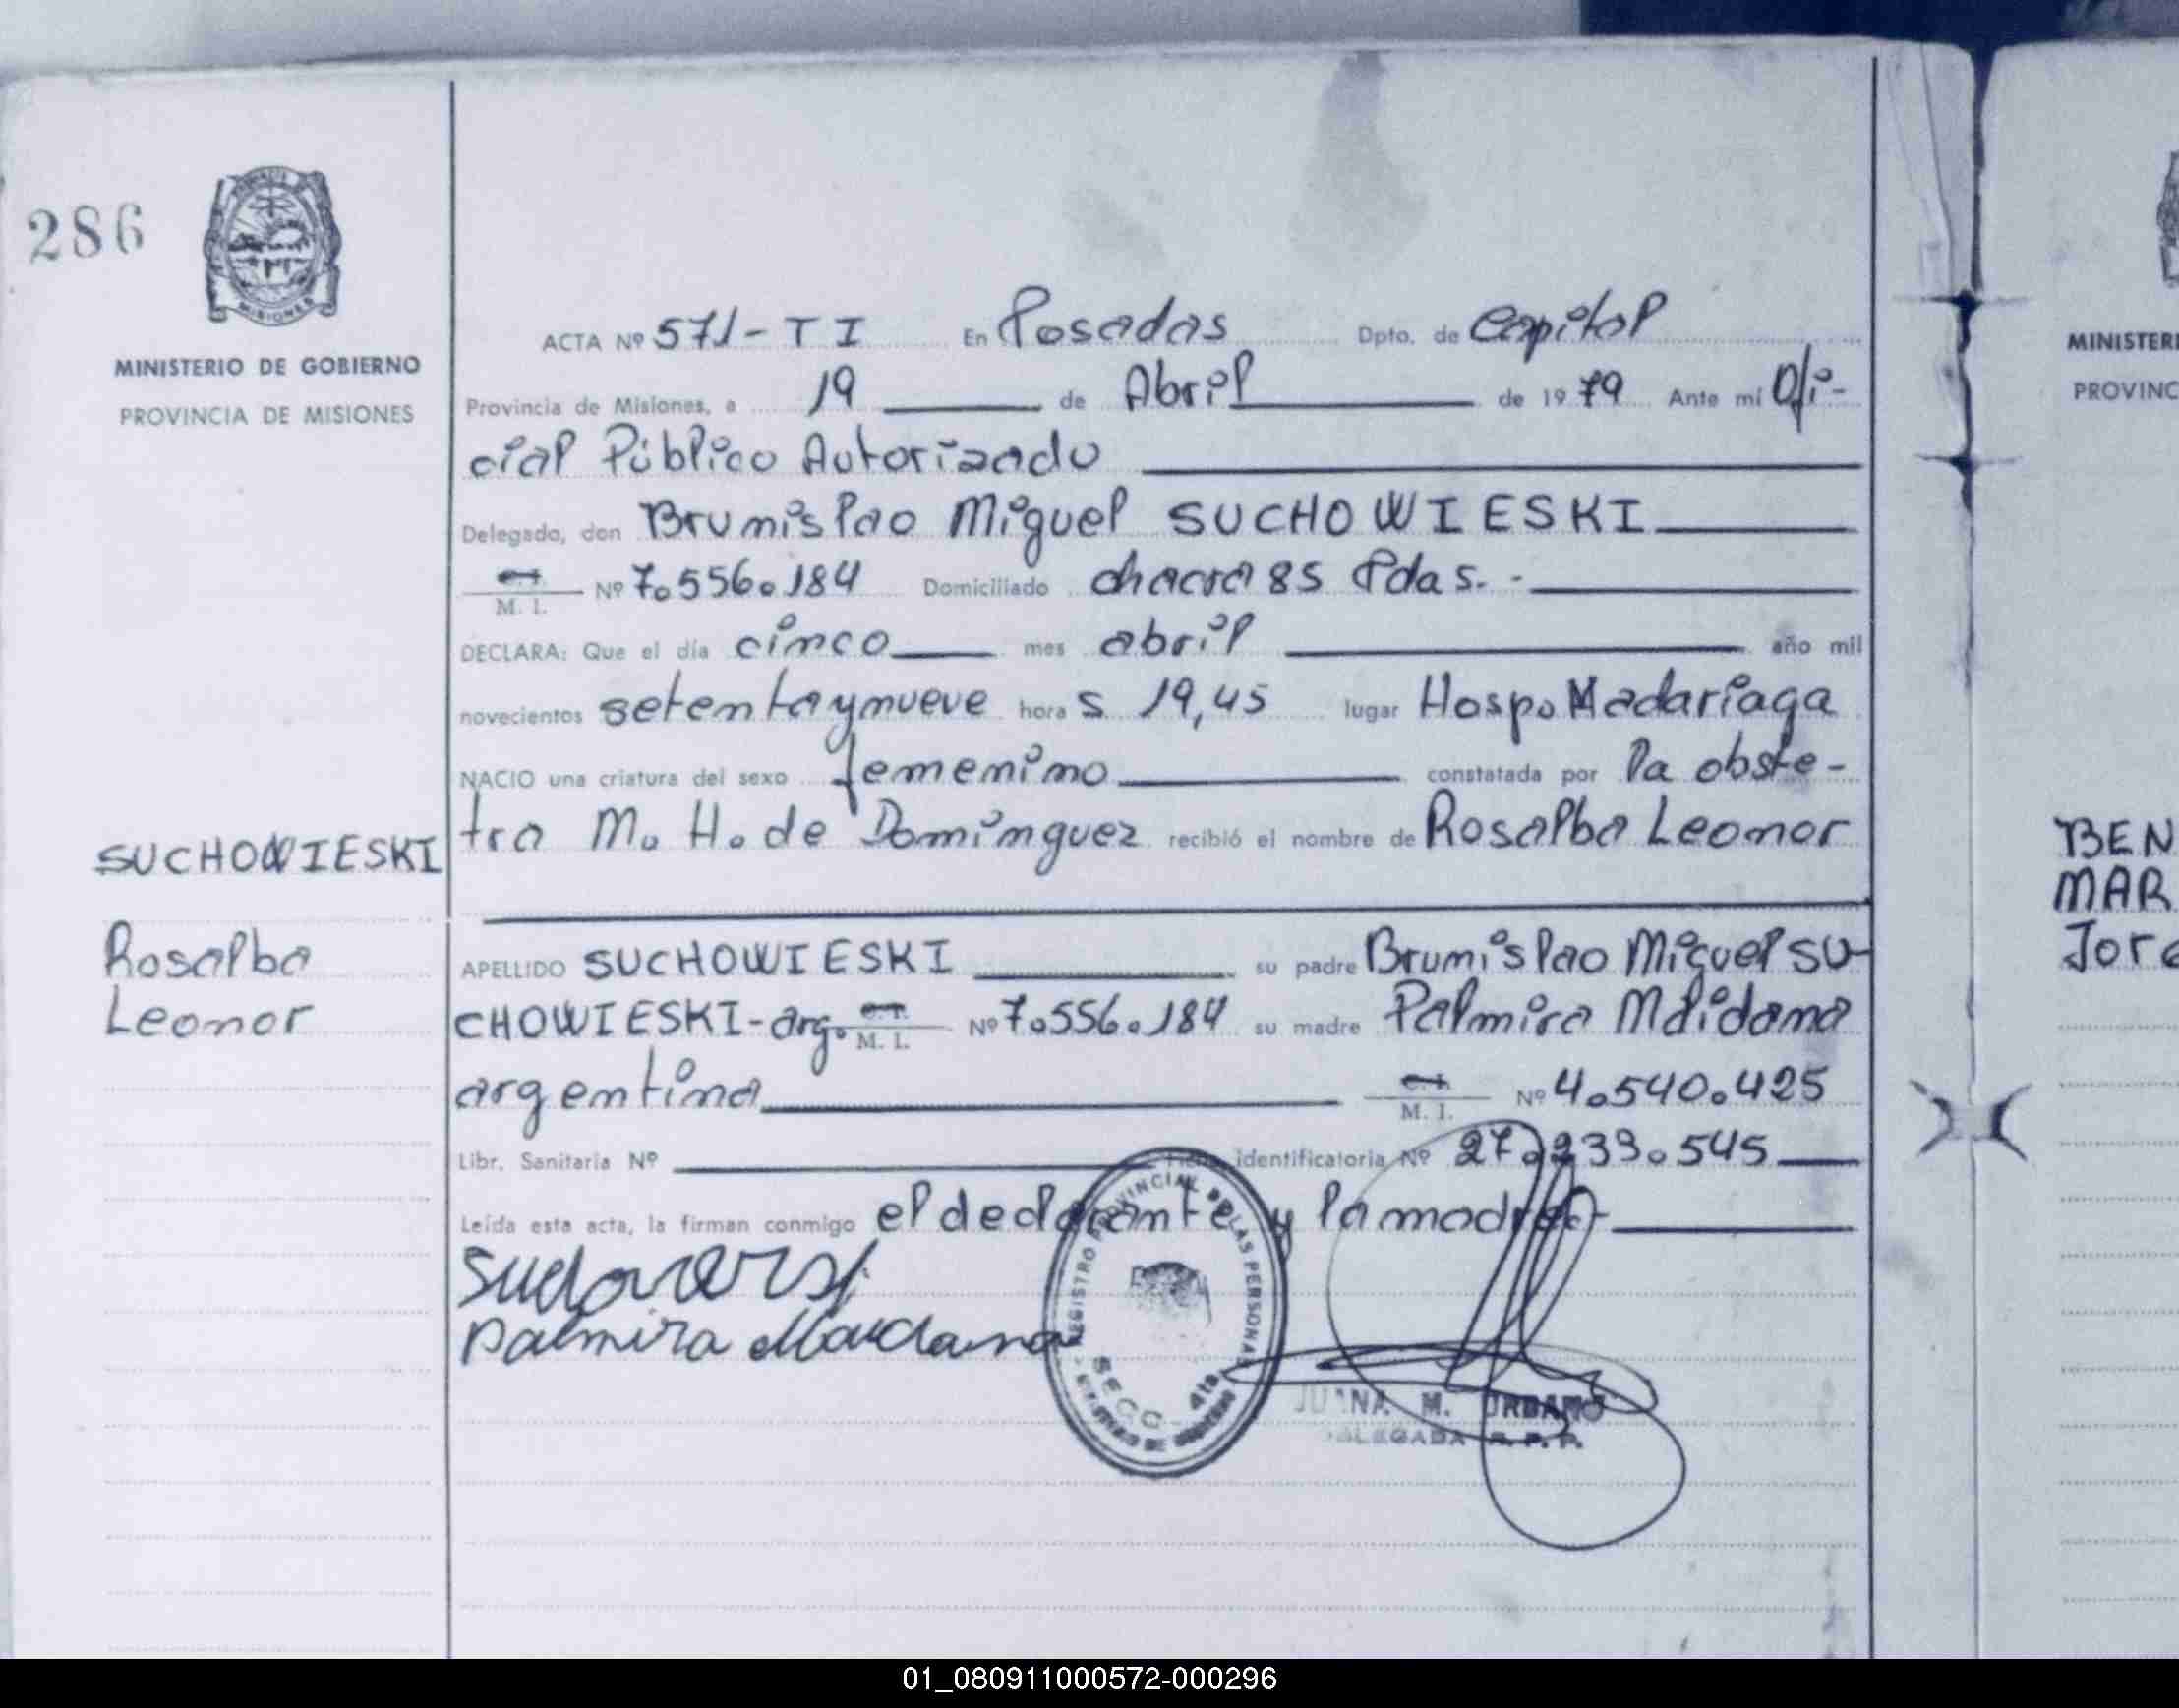 286
MISIONES
MINISTERIO DE GOBIERNO
PROVINCIA DE MISIONES
ACTA Nº 571-TI En Posadas Dpto. de Capital
Provincia de Misiones, a 19 de Abril de 1979 Ante mí Ofi-
cial Público Autorizado
Delegado, don Brunislao Miguel SUCHOWIESKI
M. I. Nº 7.556.184 Domiciliado chacra 85 Pdas.-
DECLARA: Que el día cinco mes abril año mil
novecientos setentaynueve hora s 19,45 lugar Hosp. Madariaga
NACIO una criatura del sexo femenino constatada por la obste-
tra M. H. de Domínguez recibió el nombre de Rosalba Leonor
SUCHOWIESKI
Rosalba
Leonor
APELLIDO SUCHOWIESKI su padre Brunislao Miguel SU-
CHOWIESKI-arg. M. I. Nº 7.556.184 su madre Palmira
argentina M. I. Nº 4.540.425
Libr. Sanitaria Nº identificatoria Nº 27.239.545
Leída esta acta, la firman conmigo el declarante y la madre.-
Palmira
REGISTRO PROVINCIAL DE LAS PERSONAS
SECC. 4ta.
JUANA M. URBANO
DELEGADA R. P. P.
MINISTERI
PROVINC
BEN
MAR
Jor
01_080911000572-000296